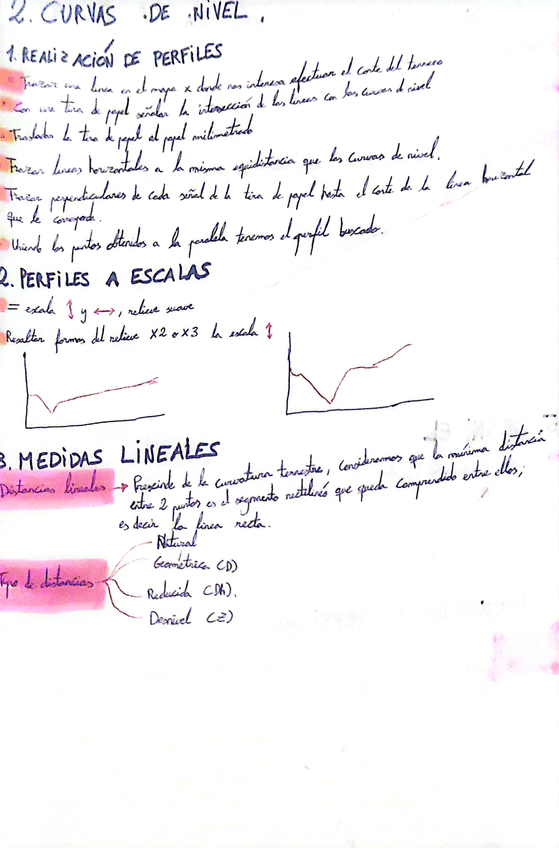 2. CURVAS DE NIVEL.
1. REALIZACIÓN DE PERFILES
Trazar una linea en el mapa x donde nos interesa efectuar el corte del terreno
Con una tira de papel señalar la intersección de las lineas con las curvas d nivel
Trasladar la tira de papel al papel milimetrado
Trazar lineas horizontales a la misma equidistancia que las curvas de nivel.
Trazar perpendiculares de cada señal de la tira de papel hasta el corte de la linea horizontal
que le corresponda.
Uniendo los puntos obtenidos a la paralela tenemos el perfil buscado.
2. PERFILES A ESCALAS
= escala ↕ y ↔, relieve suave
Resaltar formas del relieve x2 o x3 la escala ↕
3. MEDIDAS LINEALES
Distancias lineales → Prescinde de la curvatura terrestre, consideramos que la mínima distancia
entre 2 puntos es el segmento rectilíneo que queda comprendido entre ellos,
es decir la linea recta.
Tipo de distancias
Natural
Geométrica (D)
Reducida (Dh).
Desnivel (z)